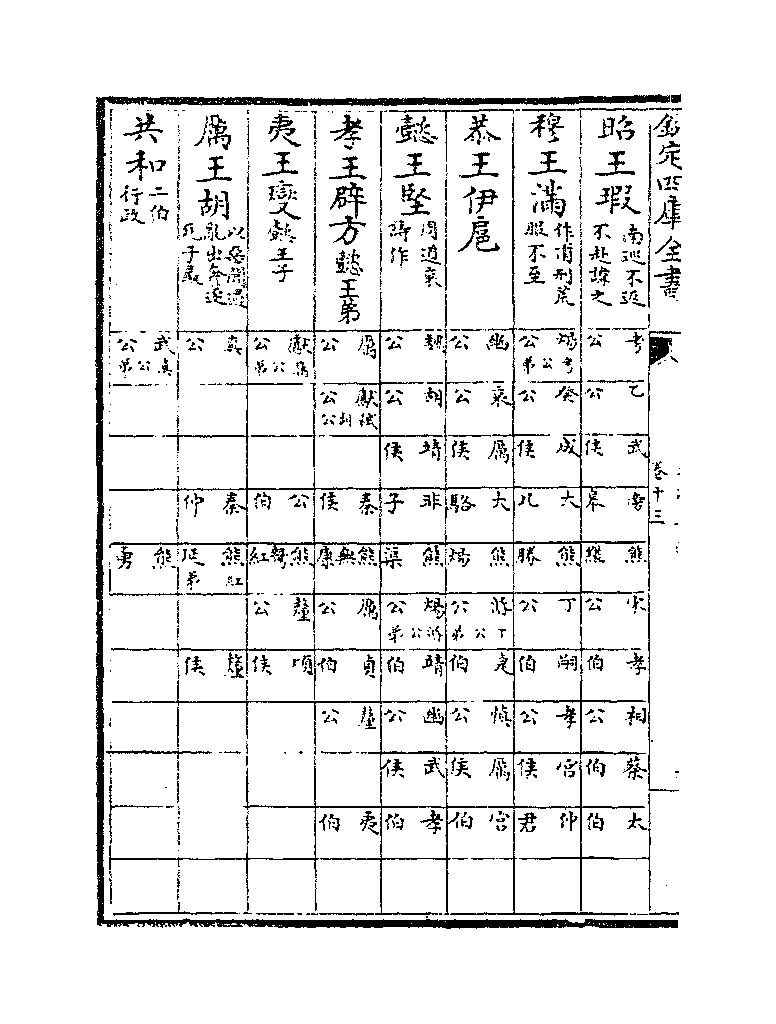 欽定四庫全書
卷十三
昭王瑕 南巡不返不赴諱之
考公
乙公
武侯
旁皋
宋公
孝伯
相公
蔡伯
太伯
穆王滿 作甫刑荒服不至
煬公 考公弟
癸公
成侯
大几
熊勝
丁公
嗣伯
孝公
宮侯
仲君
恭王伊扈
幽公
哀公
厲侯
大駱
熊煬
湣公 丁公弟
疌伯
慎公
厲侯
宮伯
懿王堅 周道衰詩作
魏公
胡公
靖侯
非子
熊渠
煬公 湣公弟
靖伯
幽公
武侯
孝伯
孝王辟方 懿王弟
厲公
獻公 弑胡公
秦侯
熊無康
厲公
貞伯
釐公
夷伯
夷王燮 懿王子
獻公 厲公弟
公伯
熊鷙紅
釐公
頃侯
厲王胡 以惡聞過亂出奔遂死于彘
真公
秦仲
熊延 紅弟
釐侯
共和 二伯行政
武公 真公弟
熊勇